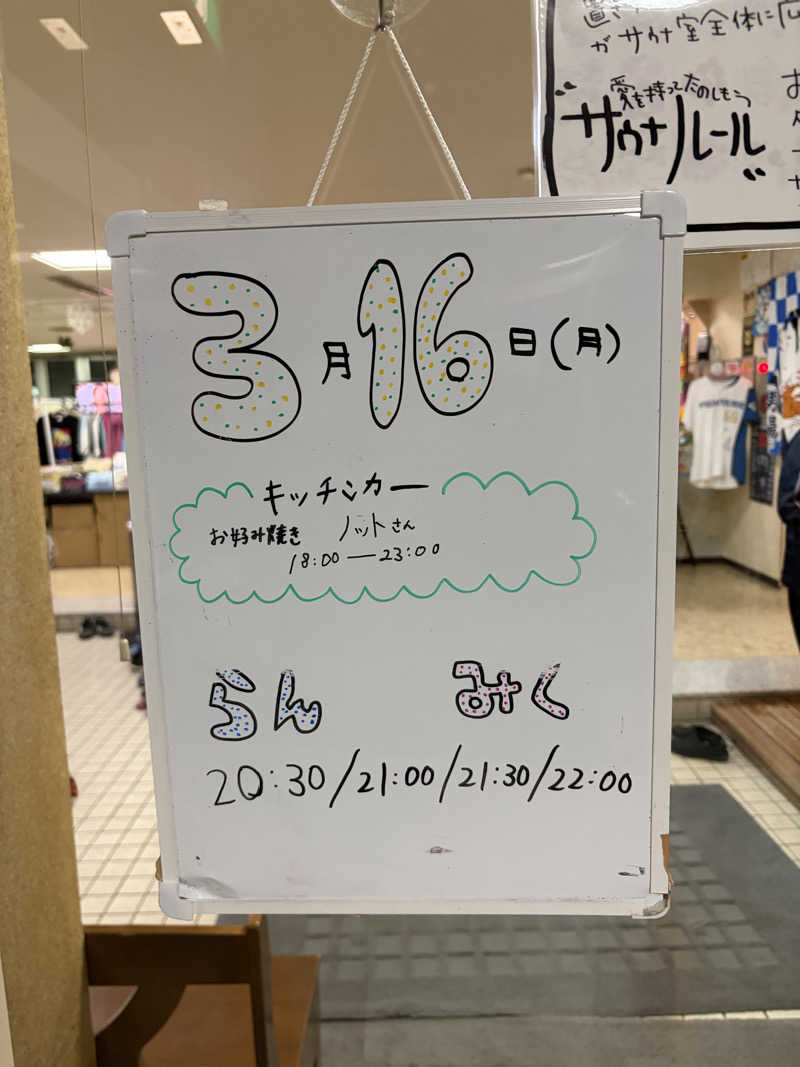 がサウナ室全体に
愛を持ってたのしもう
"サウナルール"
3月16日(月)
キッチンカー
お好み焼き ノットさん
18:00―23:00
らん みく
20:30/21:00/21:30/22:00